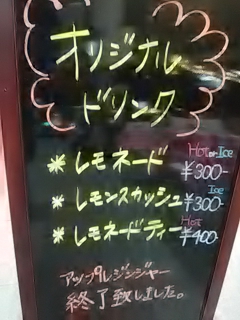 オリジナル
ドリンク
Hot or Ice
* レモネード ¥300-
Ice
* レモンスカッシュ ¥300-
Hot
* レモネードティー ¥400-
アップルジンジャー
終了致しました。